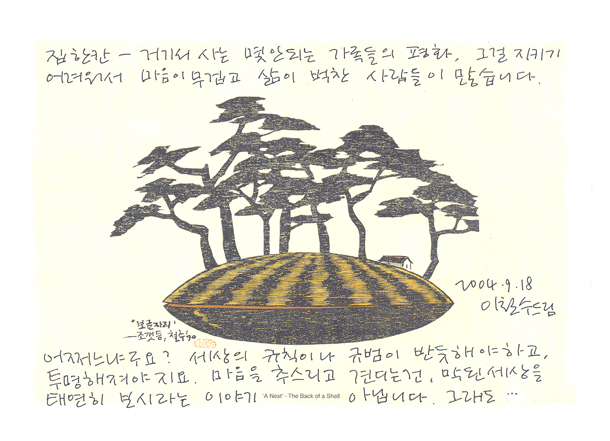 집 한칸 — 거기서 사는 몇 안되는 가족들의 평화, 그걸 지키기
어려워서 마음이 무겁고 삶이 벅찬 사람들이 많습니다.
2004.9.18
이철수드림
'보금자리'
—조껍등, 철수 '90
어쩌느냐구요? 세상의 규칙이나 규범이 반듯해야 하고,
투명해져야지요. 마음을 추스리고 견디는건, 막된 세상을
태연히 보시라는 이야기 'A Nest' - The Back of a Shell 아닙니다. 그래도 …